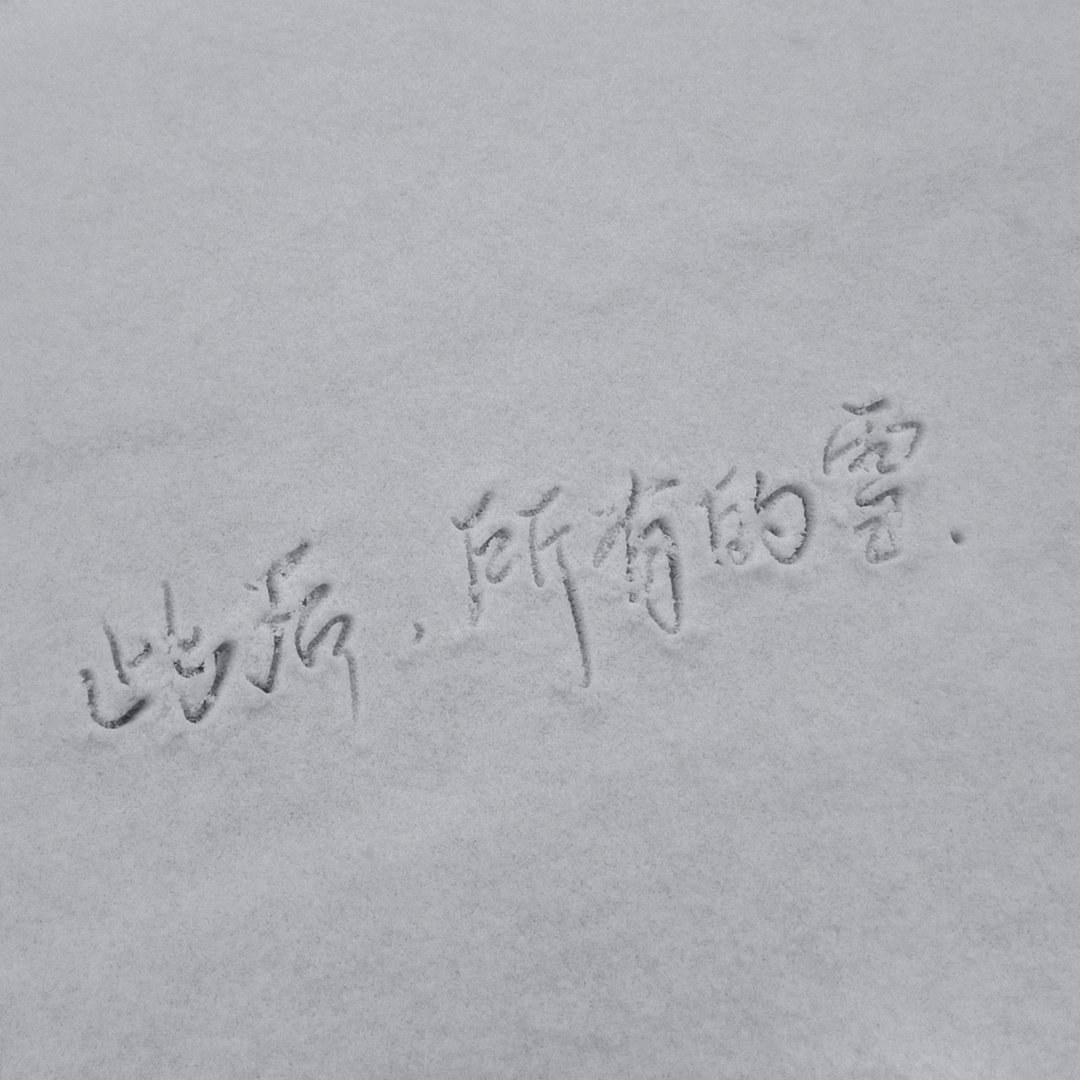 此后.所有的雪.